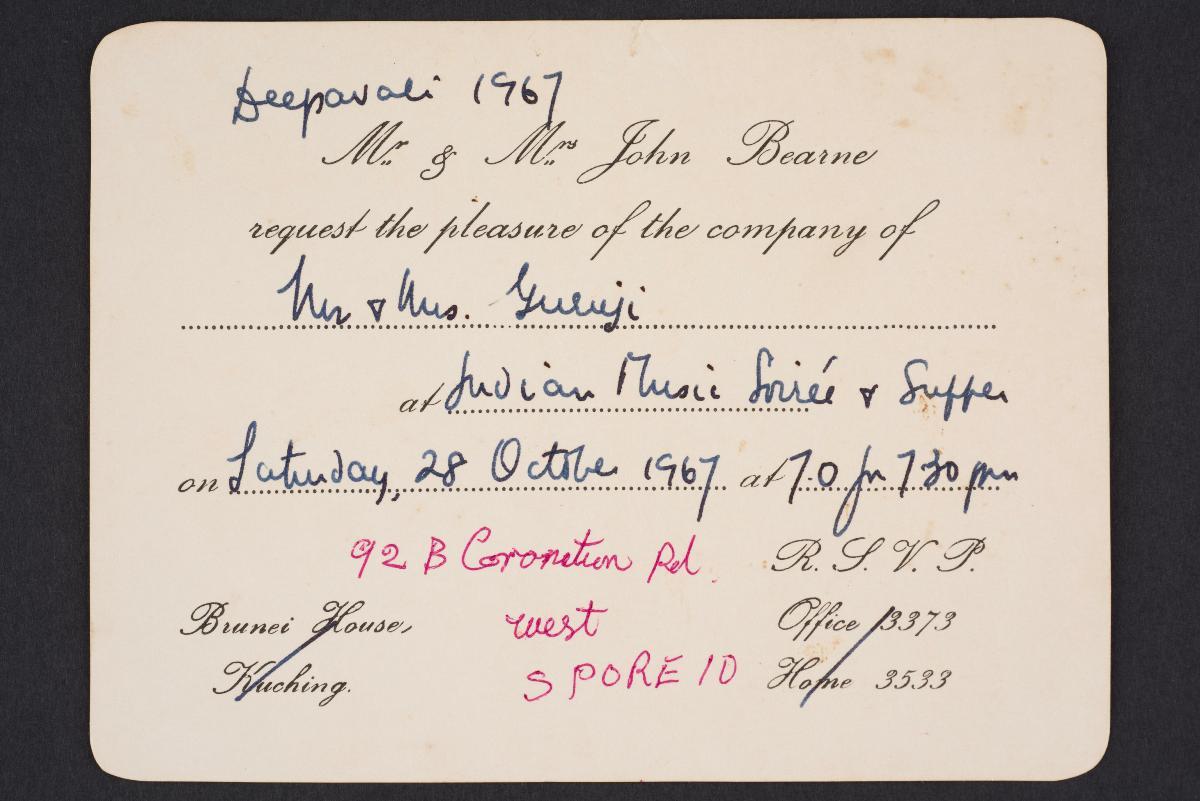 Deepavali 1967
Mr. & Mrs. John Bearne
request the pleasure of the company of
Mr & Mrs. Guruji
at Indian Music Soirée & Supper
on Saturday, 28 October 1967 at 7.0 for 7 30 pm
92 B Coronation Rd.
R. S. V. P.
West
S PORE 10
Brunei House,
Kuching.
Office 3373
Home 3533